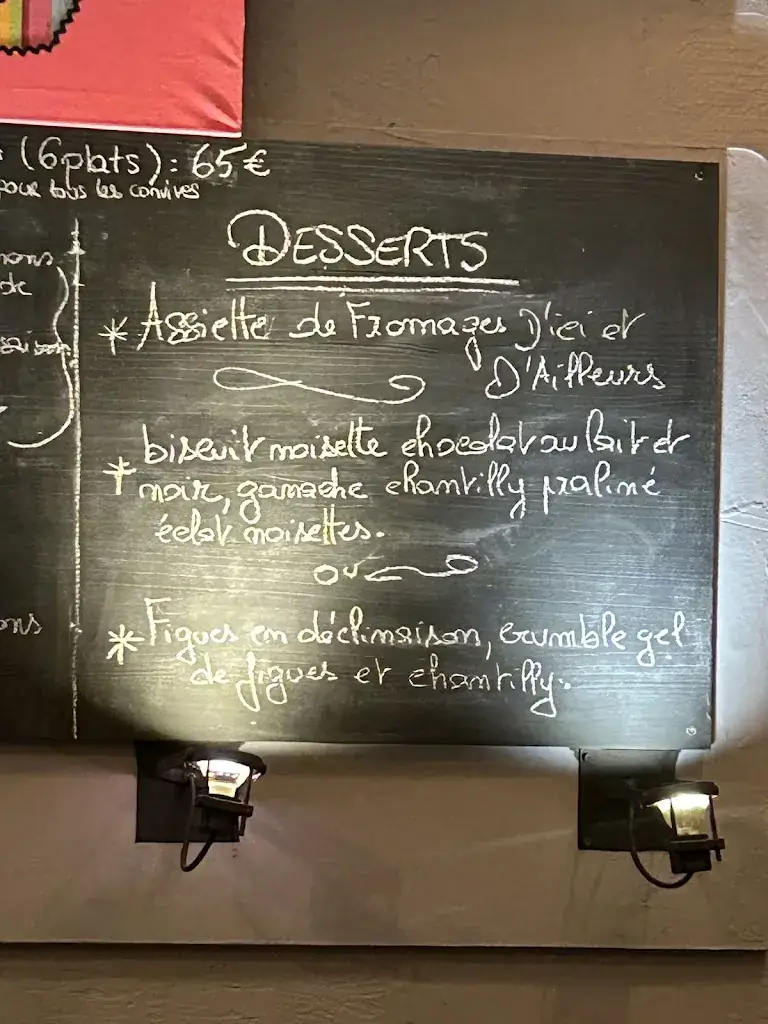 (6 plats) : 65€
pour tous les convives
DESSERTS
* Assiette de Fromages D'ici et
D'Ailleurs
biscuit noisette chocolat au lait et
* noir, ganache chantilly praliné
éclat noisettes.
ou
* Figues en déclinaison, crumble gel
de figues et chantilly.
ons